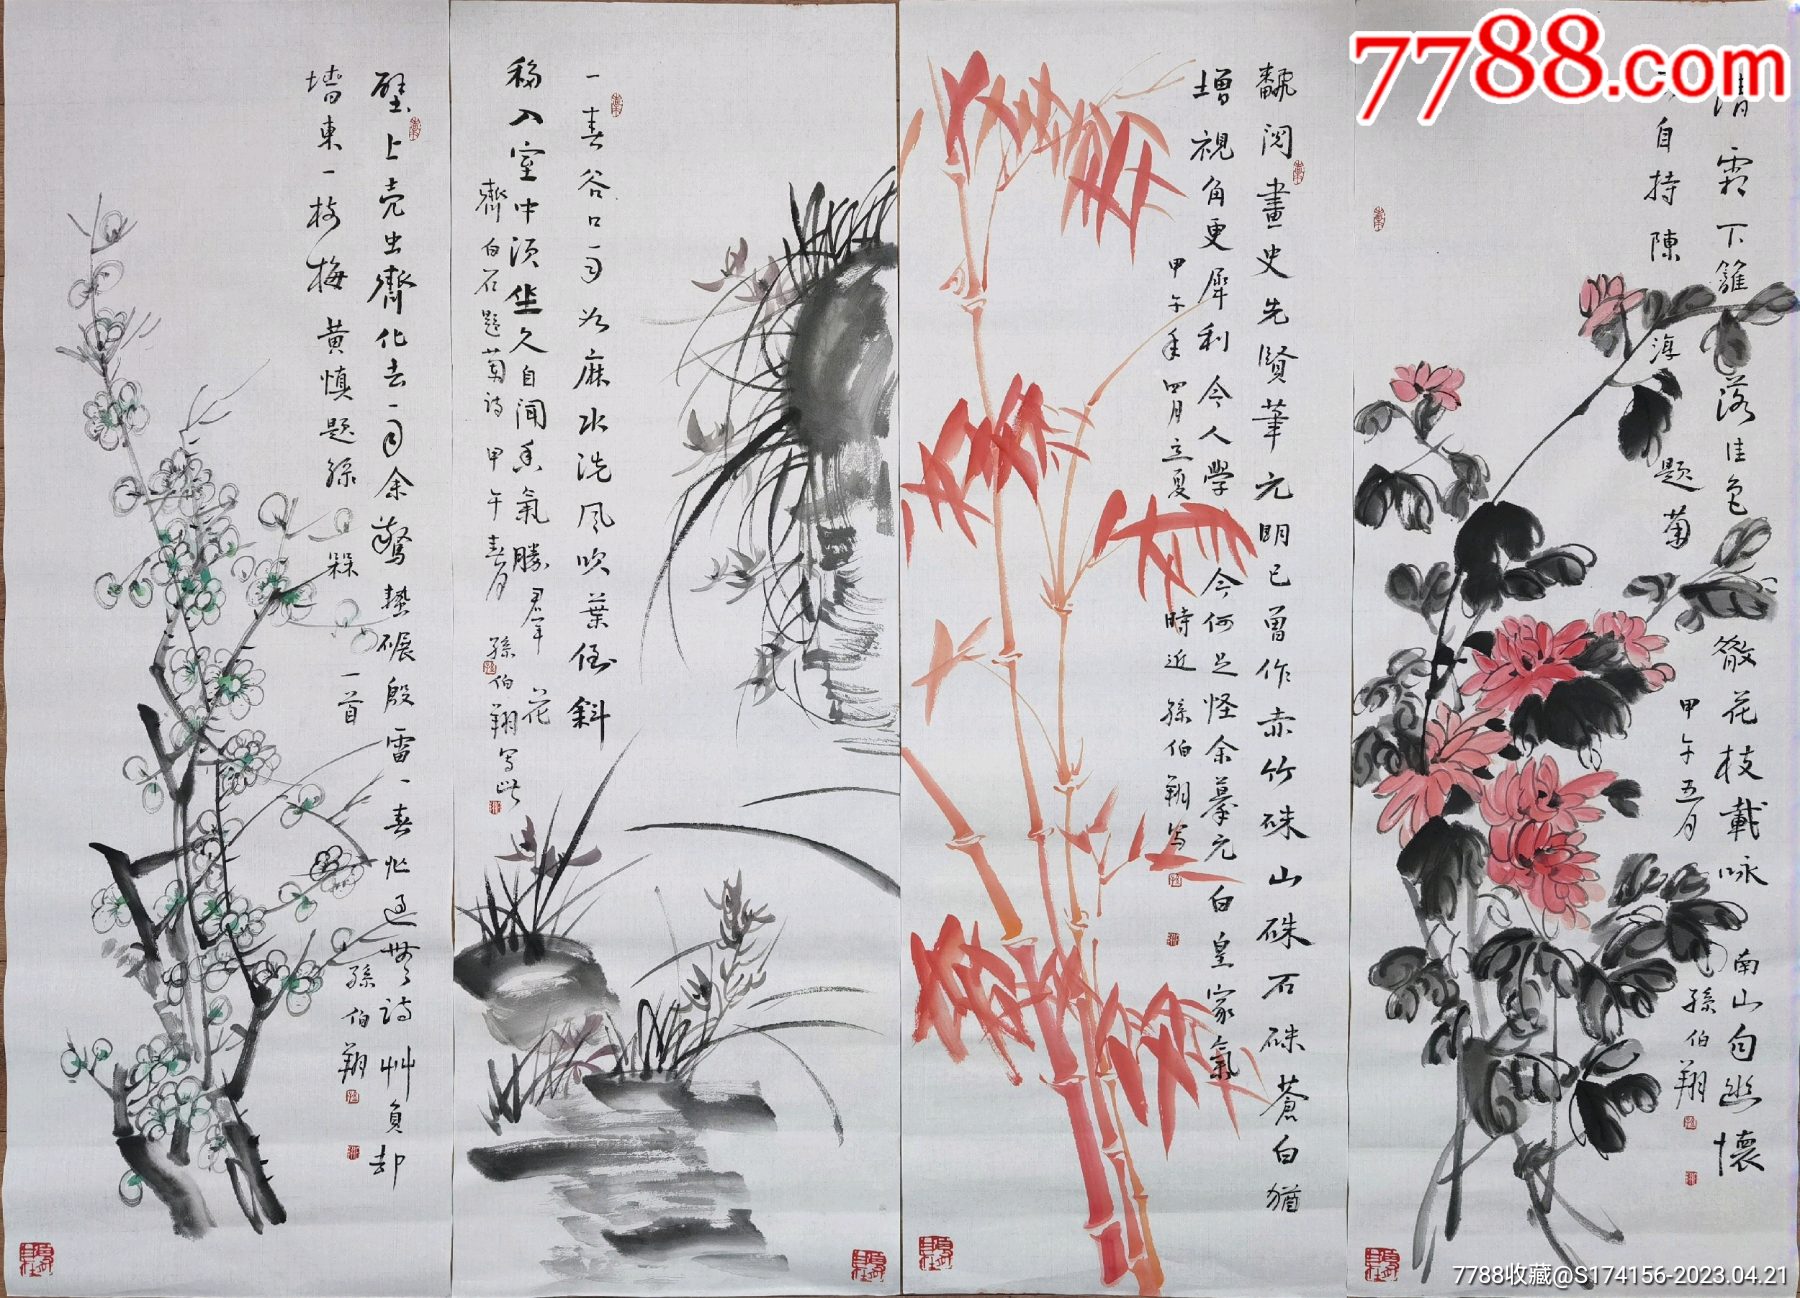 7788.com
清霜下籬落佳色散花枝載咏南山句幽懷
自持陳
淳
題菊
甲午五月
孫伯翔
翻閱畫史先賢筆元明已曾作赤竹硃山硃石硃蒼白猶
增視角更犀利今人學今何足怪余摹元白皇家氣
甲午年四月立夏時近孫伯翔寫
一春谷口雨如麻水洗風吹葉倒斜
移入室中須坐久自聞香氣勝群花
齊白石題蘭詩甲午春月孫伯翔寫此
壁上壳虫齊化去一雨余驚蟄碾殷雷一春忙過無詩艸負却
墻東一樹梅黄慎題孫
一首
孫伯翔
7788收藏@S174156-2023.04.21